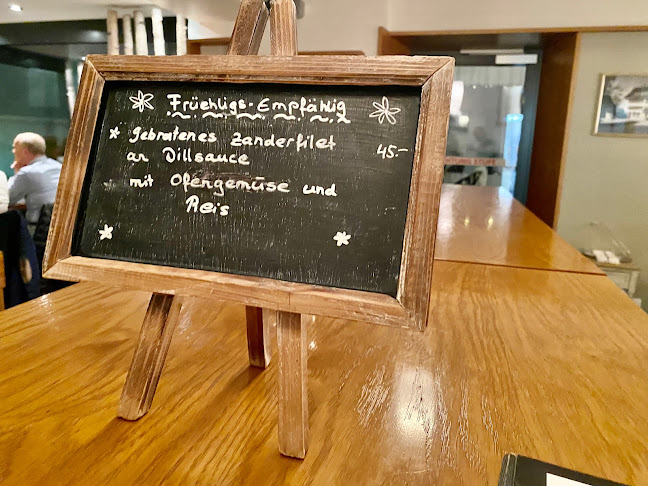 Früehligs-Empfählig
Gebratenes Zanderfilet 45.-
an Dillsauce
mit Ofengemüse und
Reis